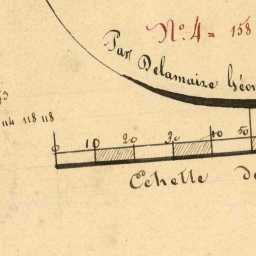 No. 4 = 158
Par Delamaire Géom
114 118 118
0 10 20 30 40 50
Echelle de